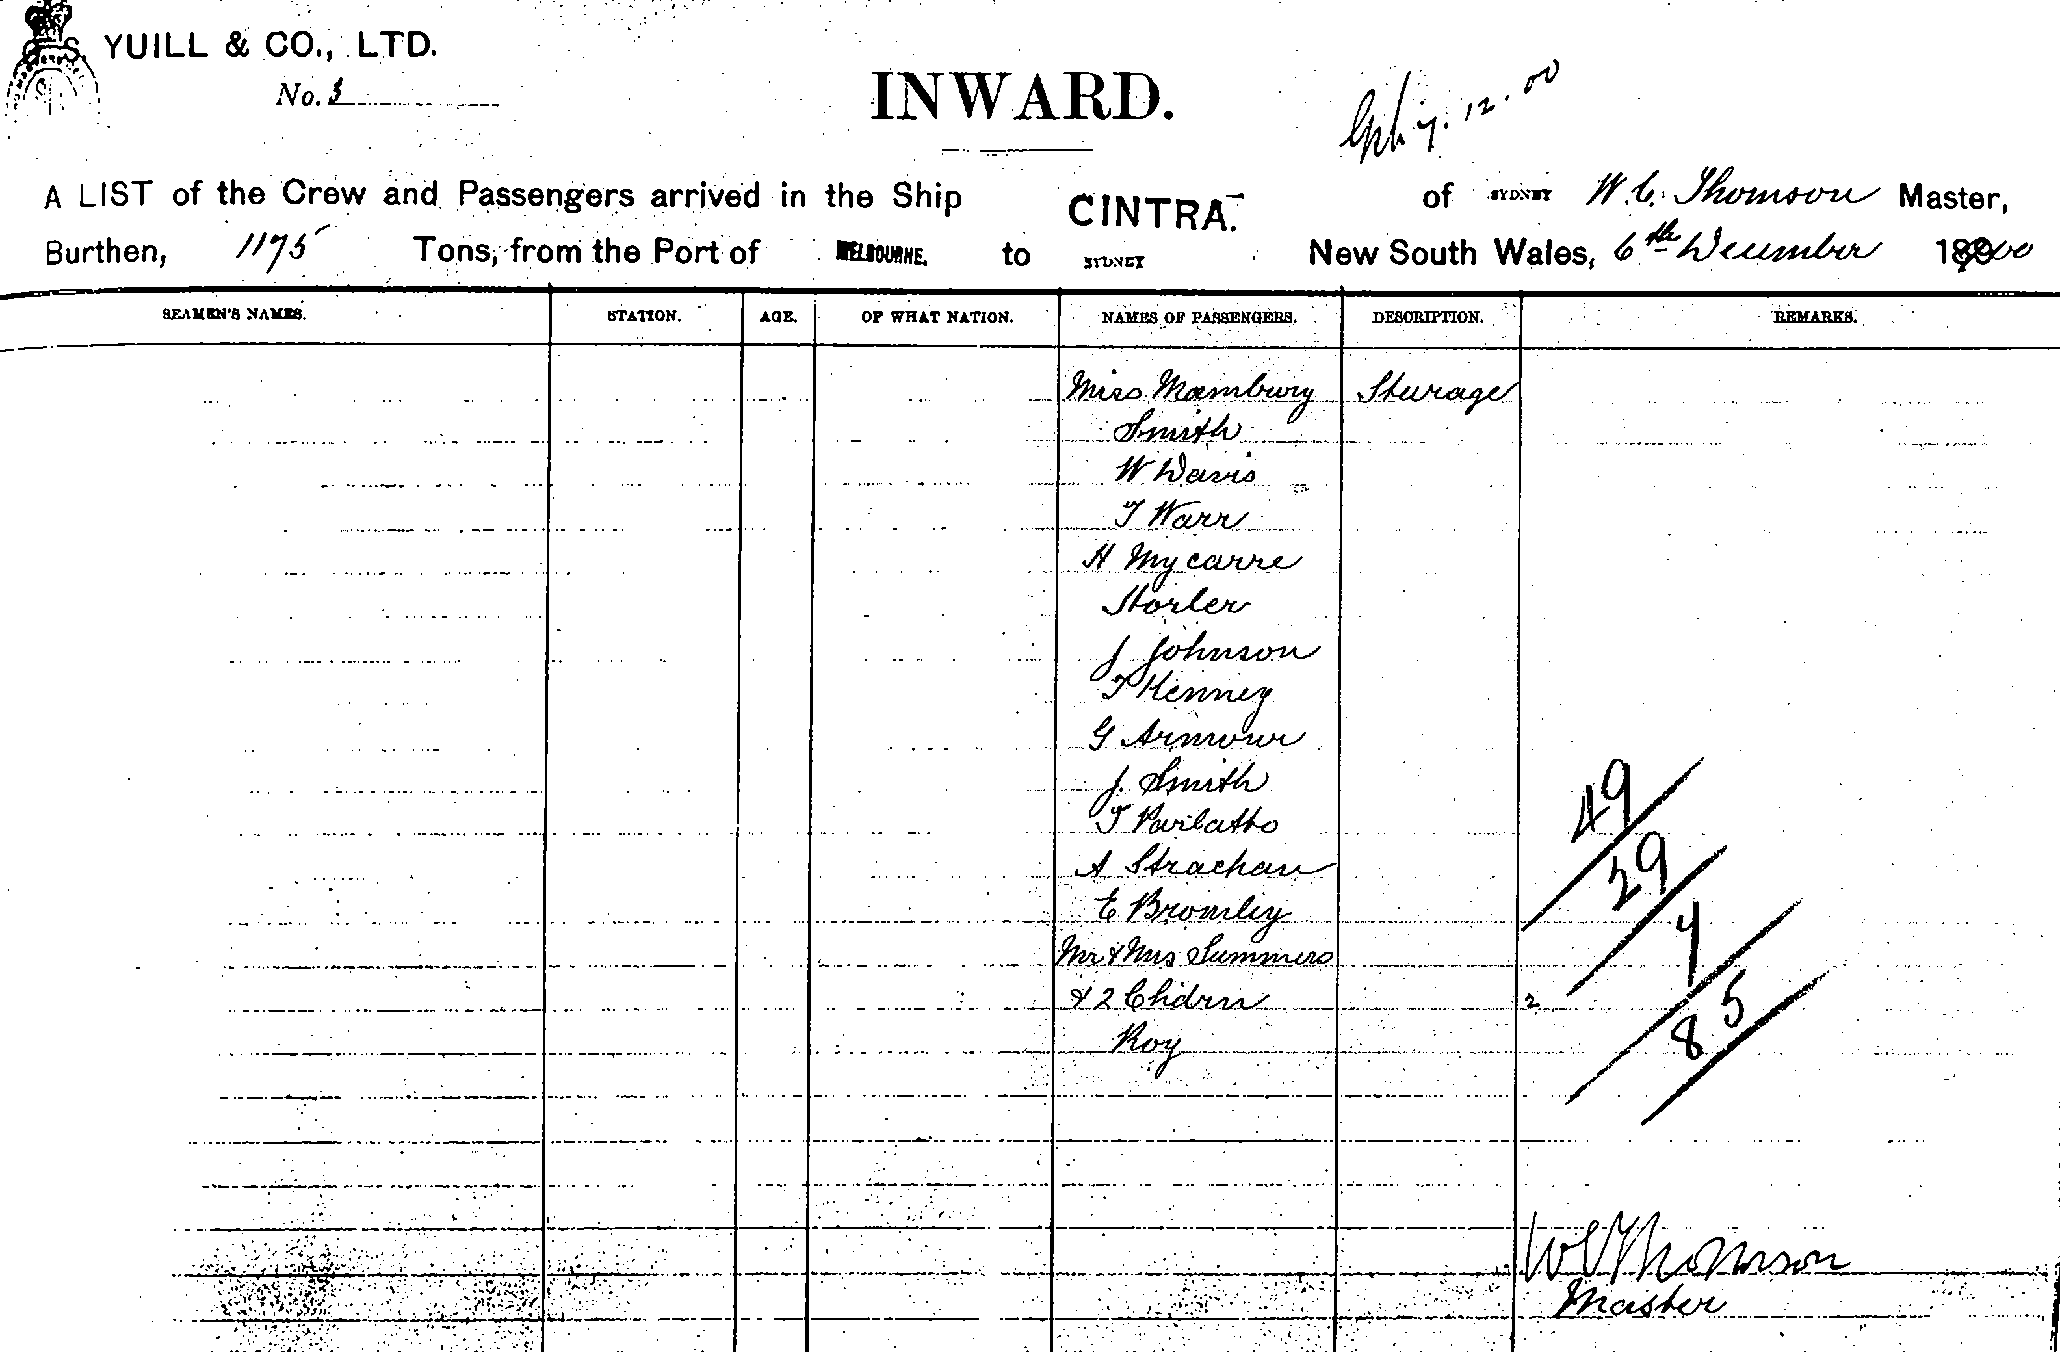 G. S. YUILL & CO., LTD.
No. 3
INWARD.
7.12.00
A LIST of the Crew and Passengers arrived in the Ship CINTRA. of SYDNEY W. C. Thomson Master,
Burthen, 1175 Tons, from the Port of MELBOURNE. to SYDNEY New South Wales, 6th December 1900
SEAMEN'S NAMES. STATION. AGE. OF WHAT NATION. NAMES OF PASSENGERS. DESCRIPTION. REMARKS.
Miss Mambury Steerage
Smith
W Davis
T Warr
H Mycarre
Storler
J Johnson
T Kenney
G Armour
J. Smith
T Parlatto
A Strachan
E Bromley
Mr & Mrs Summers
& 2 Chidrn 2
Roy
49
29
7
85
W C Thomson
Master